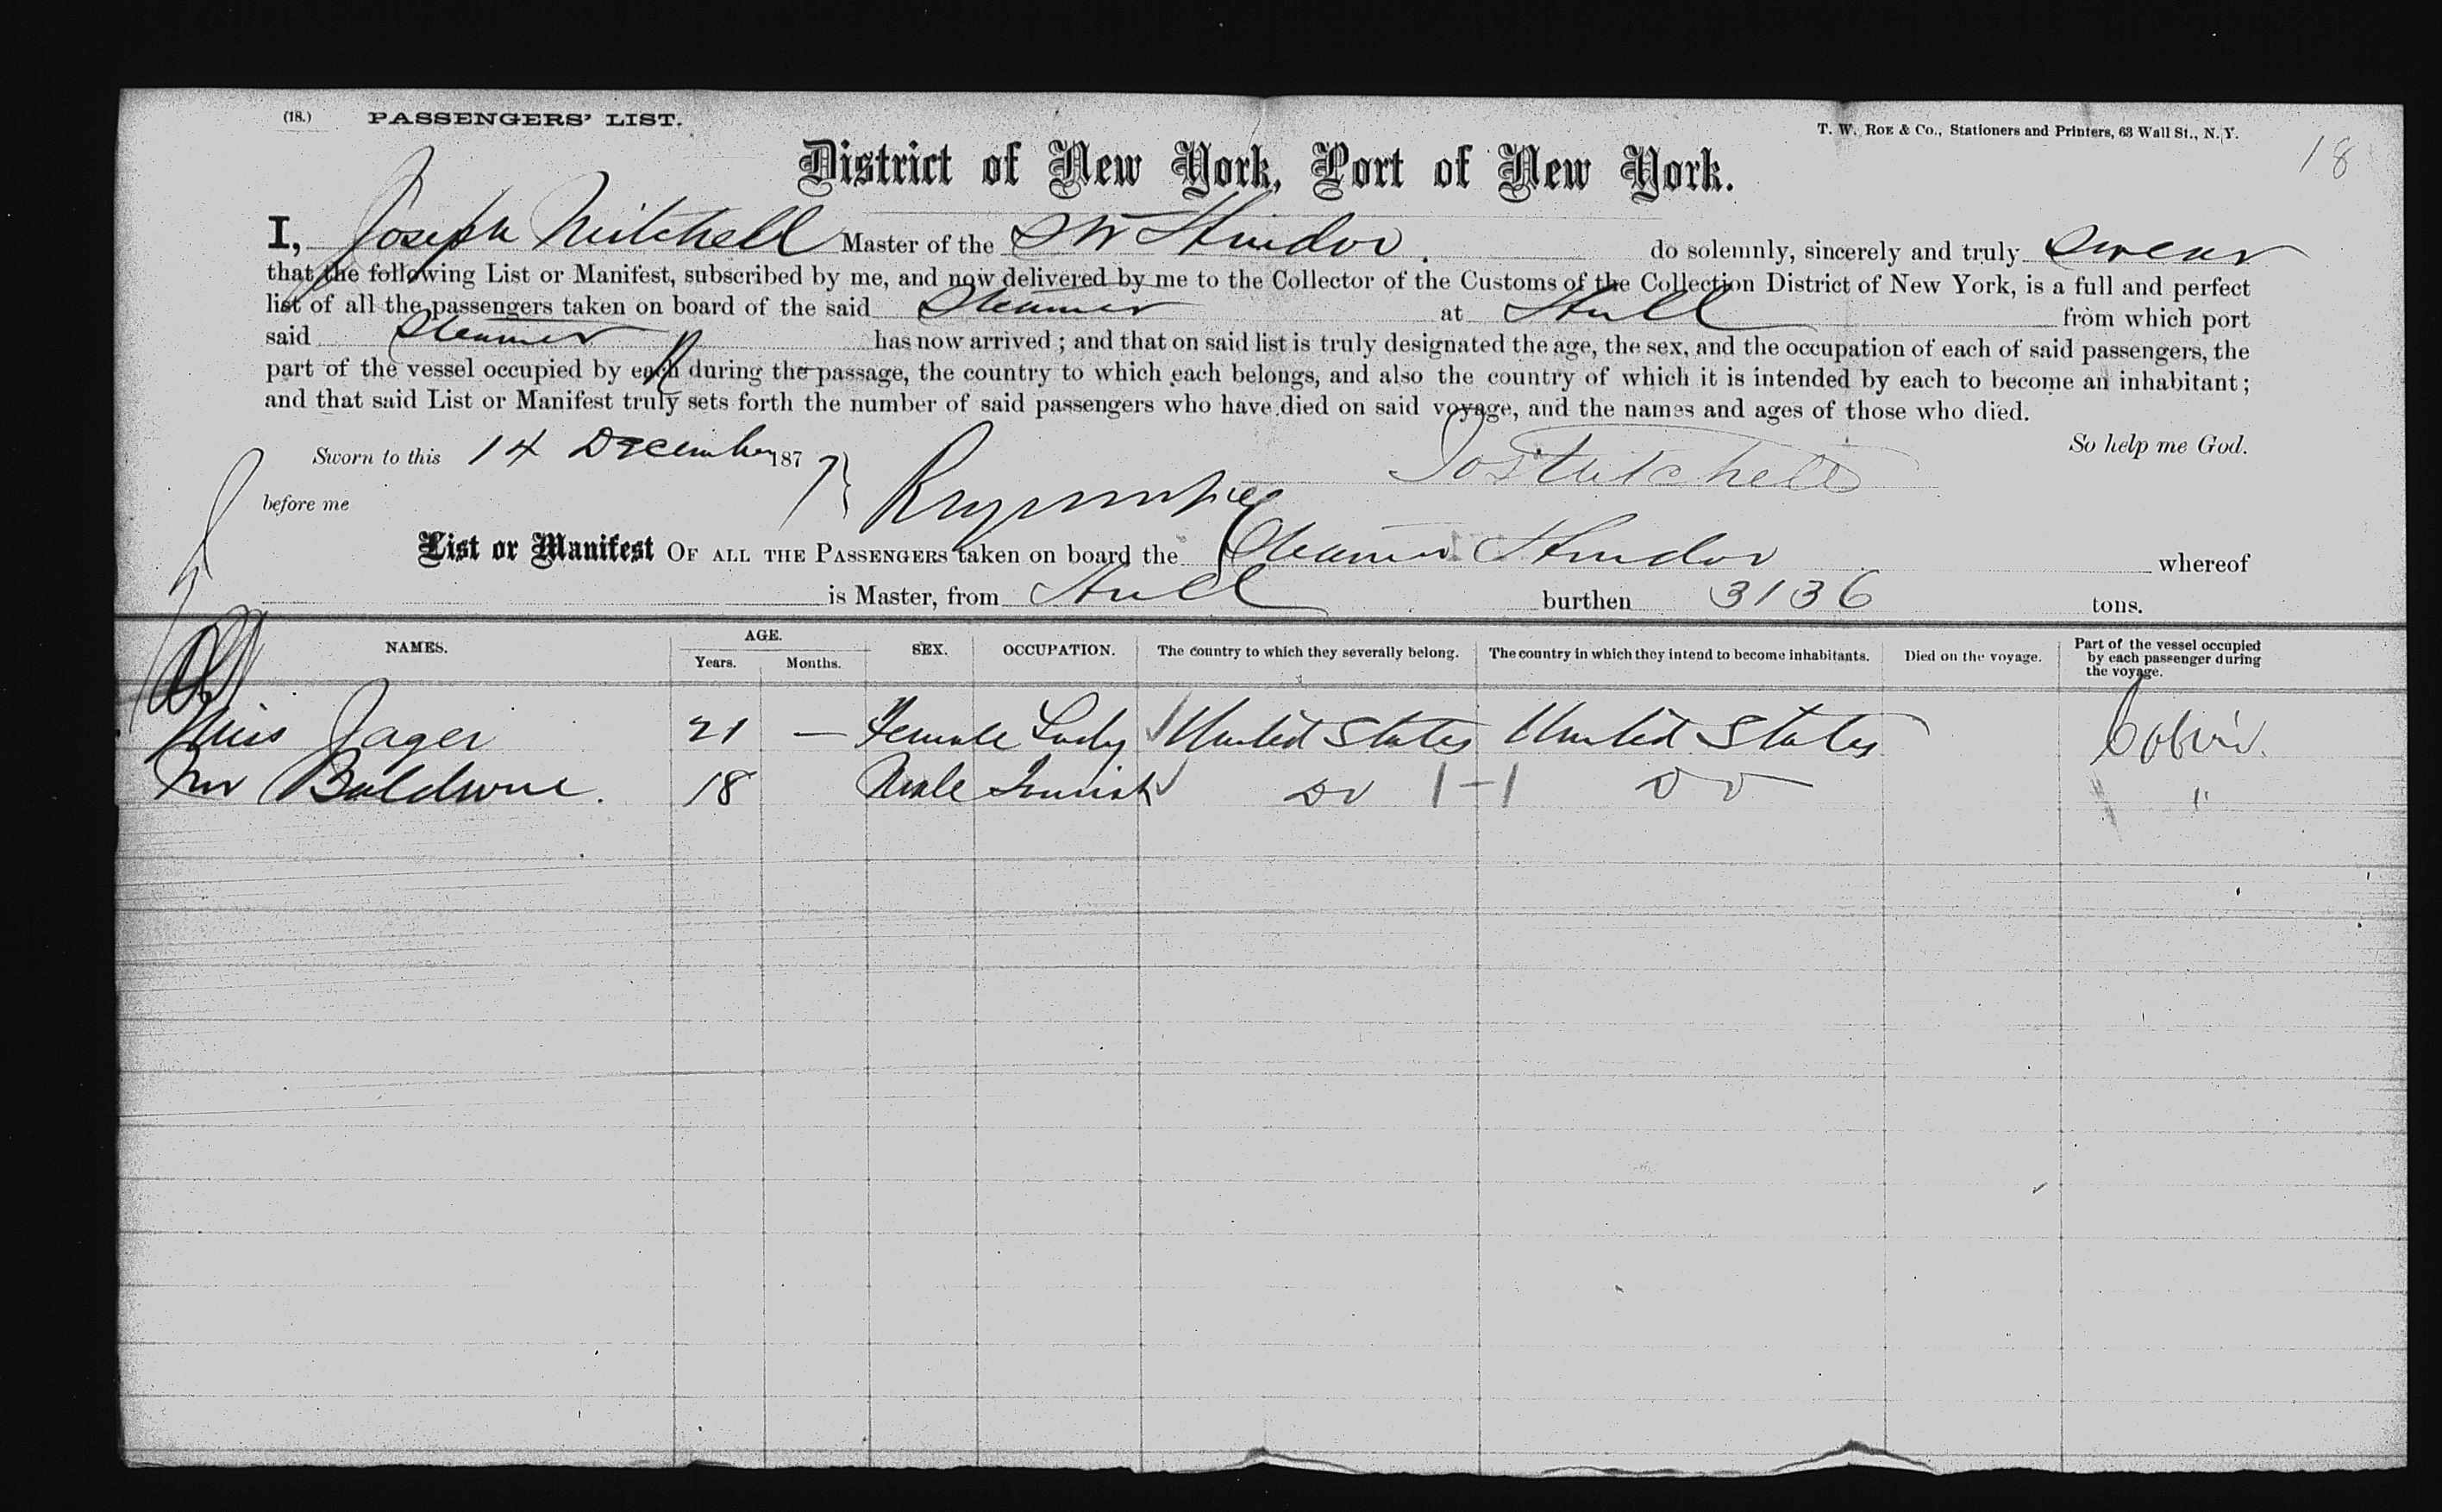 (18.) PASSENGERS' LIST. T. W. ROE & Co., Stationers and Printers, 63 Wall St., N. Y. 18
District of New York, Port of New York.
I, Joseph Mitchell Master of the SS Hindoo. do solemnly, sincerely and truly swear
that the following List or Manifest, subscribed by me, and now delivered by me to the Collector of the Customs of the Collection District of New York, is a full and perfect
list of all the passengers taken on board of the said Steamer at Hull from which port
said Steamer has now arrived ; and that on said list is truly designated the age, the sex, and the occupation of each of said passengers, the
part of the vessel occupied by each during the passage, the country to which each belongs, and also the country of which it is intended by each to become an inhabitant ;
and that said List or Manifest truly sets forth the number of said passengers who have died on said voyage, and the names and ages of those who died.
So help me God.
Sworn to this 14 December 1877 Jos Mitchell
before me
List or Manifest OF ALL THE PASSENGERS taken on board the Steamer Hindoo whereof
is Master, from Hull burthen 3136 tons.
NAMES. AGE. Years. Months. SEX. OCCUPATION. The country to which they severally belong. The country in which they intend to become inhabitants. Died on the voyage. Part of the vessel occupied by each passenger during the voyage.
Miss Jager 21 — Female Lady United States United States Cabin.
Mr Baldwine. 18 Male Tourist Do 1-1 Do "